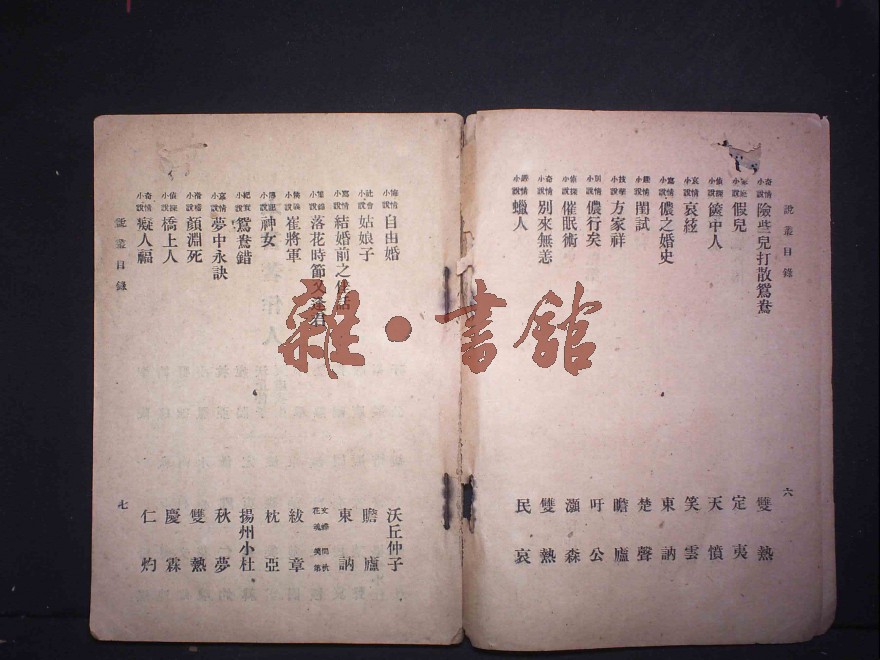 說叢目錄
奇情小說 險些兒打散鴛鴦 雙熱
小說 假兒 定夷
偵探小說 篋中人 天憤
哀情小說 哀絃 笑雲
寫情小說 儂之婚史 東訥
小說 閨試 楚聲
技擊小說 方家祥 瞻廬
別情小說 儂行矣 吁公
偵探小說 催眠術 灝森
奇情小說 別來無恙 雙熱
小說 蠟人 民哀
六
小說 自由婚 沃丘仲子
社會小說 姑娘子 瞻廬
寫情小說 結婚前之佳話 東訥
小說 落花時節又逢君
小說 崔將軍 紱章
小說 神女 枕亞
紀實小說 鴛鴦錯 揚州小杜
哀情小說 夢中永訣 秋夢
滑稽小說 顏淵死 雙熱
偵探小說 橋上人 慶霖
奇情小說 癡人福 仁灼
說叢目錄
七
雜·書館